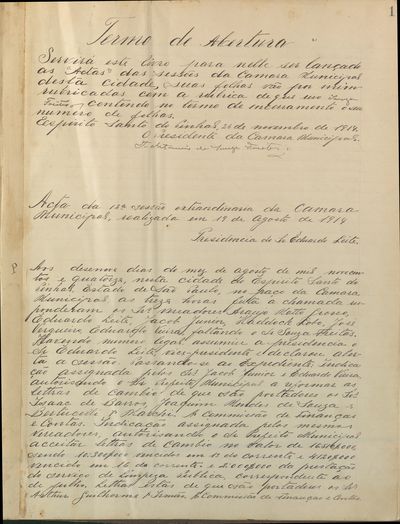 1
Termo de Abertura
Servirá este livro para nelle ser lançado
as "Actas" das sessões da Camara Municipal
desta cidade, suas folhas vão por mim
rubricadas com a rubrica de que uso Souza
Freitas, contendo no termo de encerramento o seu
numero de folhas.
Espirito Santo do Pinhal, de novembro de 1914.
O Presidente da Camara Municipal.
de Souza Freitas
Acta da 18ª sessão extraordinaria da Camara
Municipal, realizada em 19 de Agosto de 1914
Presidencia do Sr Eduardo Leite.
Aos desenove dias do mez de agosto de mil novecen-
tos e quatorze, nesta cidade do Espirito Santo do
Pinhal, Estado de São Paulo, no paço da Camara
Municipal, ás treze horas feita a chamada res-
ponderam os Srs Vereadores Araujo Motta
Eduardo Leite, Jacob Junior, Lobo, José
Eduardo faltando o de Souza Freitas.
Havendo numero legal assumiu a presidencia o
Sr Eduardo Leite, vice-presidente e declarou aber-
ta a sessão, passando-se ao Expediente. Indica-
ção assignada pelos Srs Jacob Junior e Eduardo
autorisando o Sr Prefeito Municipal a reformar as
letras de cambio de que são portadores os Srs
Isaac de Barros, Joaquim Mendes de Souza e
Bertuccelli & A Commissão de Finanças
e Contas. Indicação assignada pelos mesmos
vereadores, autorisando o Sr Prefeito Municipal
a acceitar letras de cambio no valor de
sendo vencidos em 13 do corrente e
vencido em 16 do corrente e da prestação
do serviço de limpeza publica, correspondente ao
de Junho, letras estas de que são portadores os Srs
Arthur Guilherme & Irmão. A Commissão de Finanças e Contas.